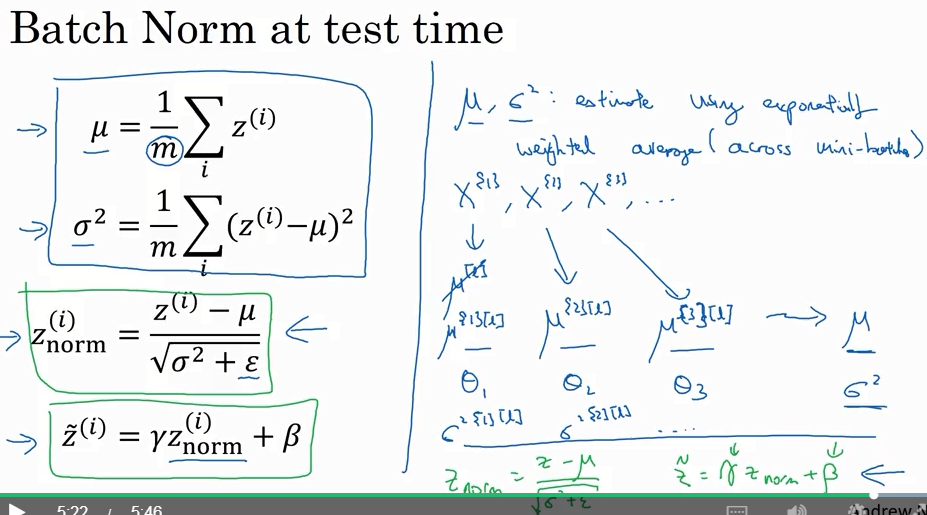 Batch Norm at test time
μ = 1/m ∑_i z^(i)
σ² = 1/m ∑_i (z^(i)−μ)²
z_norm^(i) = (z^(i) − μ) / √(σ² + ε)
z̃^(i) = γz_norm^(i) + β
μ, σ² : estimate using exponentially
weighted average (across mini-batches)
X^{1}, X^{2}, X^{3}, ...
μ^{1}[l] μ^{2}[l] μ^{3}[l] → μ
θ₁ θ₂ θ₃ σ²
σ²^{1}[l] σ²^{2}[l] ....
z_norm = (z − μ) / √(σ² + ε) z̃ = γ z_norm + β
5:22 / 5:46
Andrew N